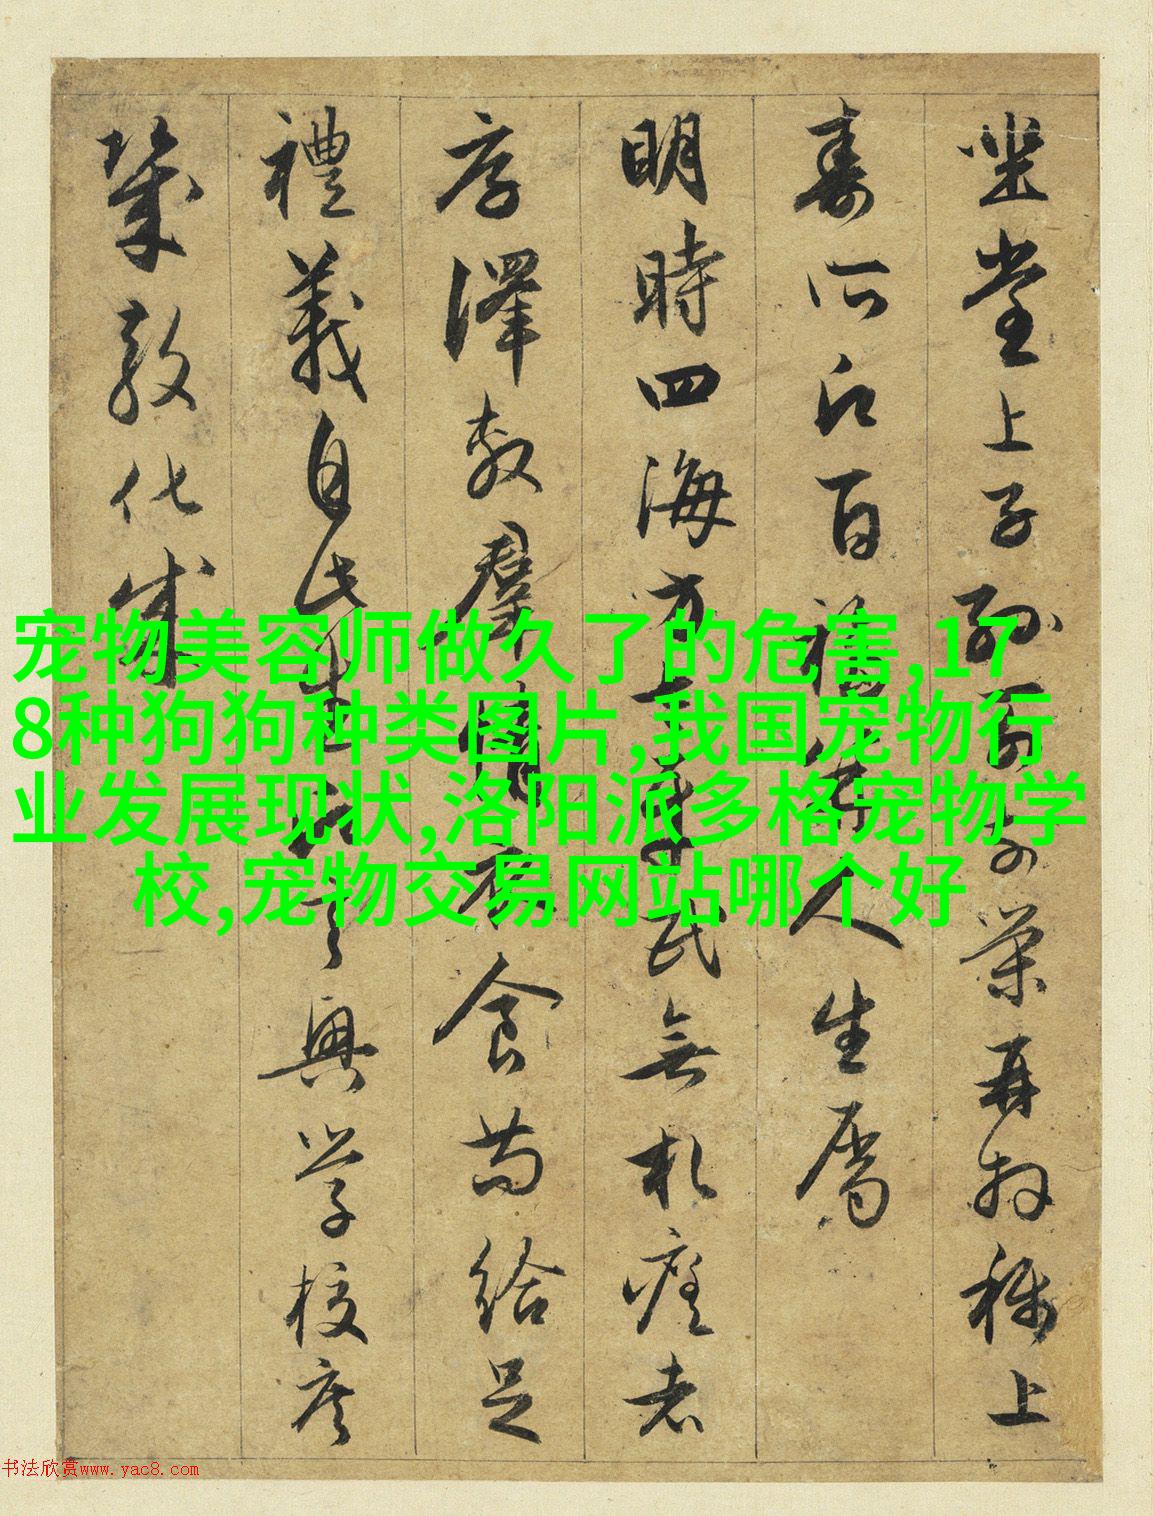 坐堂上子孫前
榮再拜稱上
壽所祈百福
人生屬
明時四海
民無札瘥老
序澤教羣
衣食茍給足
禮義自
興學校庠
幾教化成
宠物美容师做久了的危害,17
8种狗狗种类图片,我国宠物行
业发展现状,洛阳派多格宠物学
校,宠物交易网站哪个好
书法欣赏www.yac8.com